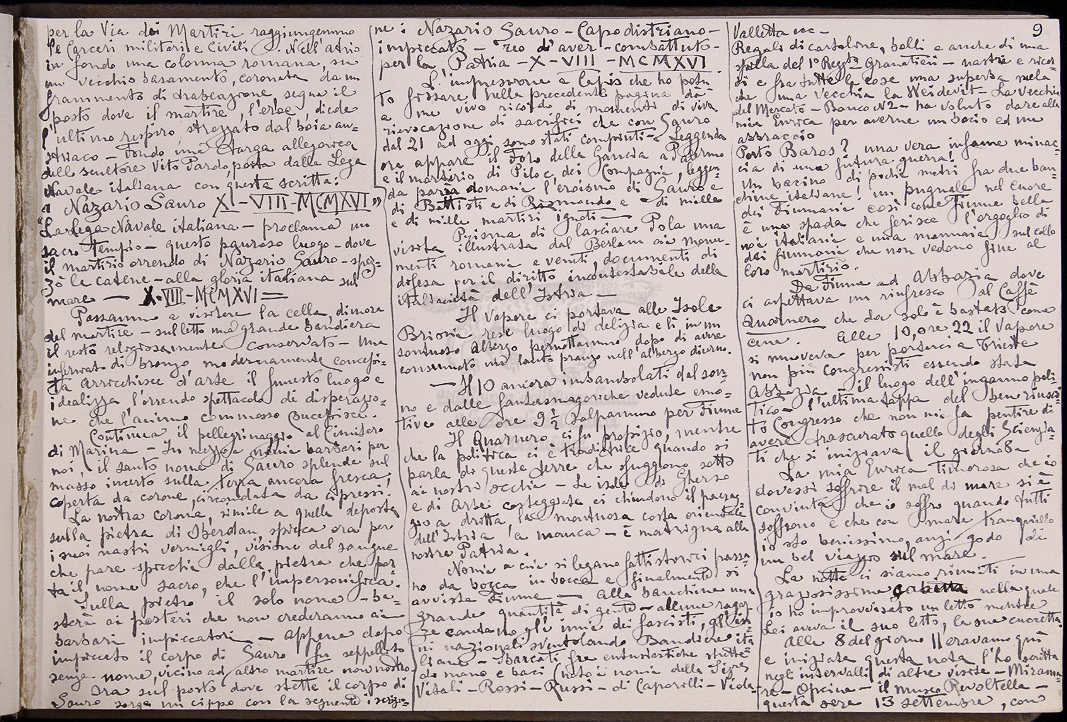 per la Via dei Martiri raggiungemmo
le Carceri militari e Civili. Nell'atrio
in fondo una colonna romana, su
vecchio basamento, coronata da un
frammento di trabeazione segna il
posto dove il martire, l'eroe, diede
l'ultimo respiro strozzato dal boia au=
striaco - Fondo una Targa allegorica
dello scultore Vito Pardo, posta dalla Lega
Navale italiana con questa scritta:
A Nazario Sauro X-VIII-MCMXVI
La Lega Navale italiana - proclama un
sacro tempio - questo pauroso luogo - dove
il martirio orrendo di Nazario Sauro - spez=
zò le catene - alla gloria italiana sul
mare - X-VIII-MCMXVI =
Passammo a visitare la cella, dimora
del martire - sul letto una grande bandiera
il resto religiosamente conservato - Una
inferriata di bronzo modernamente concepi=
ta arricchisce d'arte il funesto luogo e
idealizza l'orrendo spettacolo di disperazio=
ne che l'animo commosso
Continua il pellegrinaggio al Cimitero
di Marina - In mezzo a nomi barbari per
noi, il santo nome di Sauro splende sul
masso inserto sulla terra ancora fresca,
coperta da corone, circondata da cipressi.
La nostra corona, simile a quella deposta
sulla pietra di Oberdan, spicca ora per
i suoi nastri vermigli, visione del sangue
che pare spicchi dalla pietra che por
ta il nome sacro, che l'impersonifica.
Sulla pietra il solo nome - ba=
sterà ai posteri che non crederanno ai
barbari impiccatori - Appena dopo
impiccato il corpo di Sauro fu seppellito
senza nome, vicino ad altro martire
Ora sul posto dove stette il corpo di
Sauro sorge un cippo con la seguente iscrizio=
ne: Nazario Sauro - Capodistriano -
impiccato - reo d'aver - combattuto -
per la Patria - X-VIII-MCMXVI.
L'impressione a lapis che ho potu
to fissare nella precedente pagina dà
a me vivo ricordo di momenti di viva
rievocazione di sacrifici che con Sauro
dal 21 ad oggi sono stati compiuti - Leggenda
ora appare il foro della Gancia a Palermo
e il martirio di Pilo e dei Compagni, leggen=
da parrà domani l'eroismo di Sauro e
di Battisti e di Rismondo e di mille
e di mille martiri ignoti -
Prima di lasciare Pola una
visita illustrata dal Berlam ai monu=
menti romani e veneti documenti di
difesa per il diritto incontestabile della
italianità dell'Istria -
Il Vapore ci portava alle Isole
Brioni - rese luogo di delizia e lì in un
sontuoso albergo pernottammo dopo di avere
consumato un lauto pranzo nell'albergo diurno.
- Il 10 ancora insonnolati dal son=
no e dalle fantasmagoriche vedute emo=
tive alle ore 9½ salpammo per Fiume
Il Quarnero ci fu propizio, mentre
che la politica ci è traditrice quando si
parla di queste terre che sfuggono sotto
ai nostri occhi - Le isole di Cherso
e di Arbe costeggiate ci chiudono il passag=
gio a dritta, la montuosa costa orientale
dell'Istria a manca - è matrigna alla
nostra Patria.
Nomi a cui si legano fatti storici passa
no da bocca in bocca e finalmente si
avvista Fiume - Alla banchina una
grande quantità di gente - alcune ragaz=
ze cantano gli inni dei fascisti, gli in=
ni nazionali sventolando Bandiere ita
liane - Sbarcati fra entusiastiche strette
di mano e baci noto i nomi delle Sigre
Vitali - Rossi - Russi - di Caporilli - Viola
Valletta ecc -
Regali di cartoline, bolli e anche di una
spilla del 1° Regto Granatieri - nastri e ricor=
di e fra tutte le cose una superba mela
che una vecchia la Weidevit - La Vecchia
del Mercato - Banco N2 - ha voluto dare alla
mia Enrica per averne un bacio ed un
abbraccio
Porto Baros? una vera infame minac=
cia di una futura guerra!
Un bacino di pochi metri fra due ban
chine italiane! un pugnale nel cuore
dei Fiumani così come Fiume bella
è una spada che ferisce l'orgoglio di
noi italiani e una mannaia sul collo
dei fiumani che non vedono fine al
loro martirio.
Da Fiume ad Abbazia dove
ci aspettava un rinfresco al Caffè
Quarnero che da solo è bastato come
cena. Alle 10, ore 22 il Vapore
si muoveva per portarci a Trieste
non più congressisti essendo stata
Abbazia - il luogo dell'inganno poli=
tico - l'ultima tappa del ben riusci=
to Congresso che non mi fa pentire di
avere trascurato quello degli Scienzia=
ti che si iniziava il giorno 8
La mia Enrica timorosa che io
dovessi soffrire il mal di mare si è
convinta che io soffro quando tutti
soffrono e che con mare tranquillo
io sto benissimo, anzi godo di
un bel viaggio sul mare.
La notte ci siamo riuniti in una
graziosissima cabina nella quale
io ho improvvisato un letto mentre
Lei aveva il suo letto, la sua cuccetta.
Alle 8 del giorno 11 eravamo qui
e iniziata questa nota l'ho scritta
negli intervalli di altre visite - Mirama=
re - Opcina - il museo Revoltella -
questa sera 13 settembre, con
9